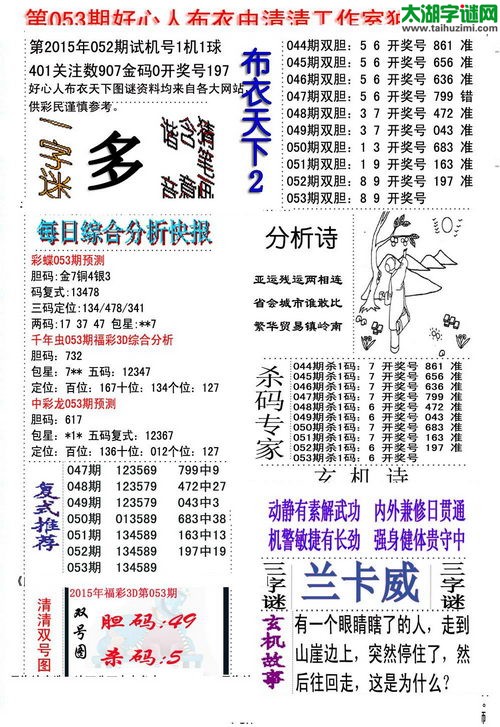 第053期好心人布衣
太湖字谜网
www.taihuzimi.com
第2015年052期试机号1机1球
401关注数907金码0开奖号197
好心人布衣天下图谜资料均来自各大网站,
供彩民谨慎参考。
一字谜
多
布衣天下2
044期双胆: 5 6 开奖号 861 准
045期双胆: 5 6 开奖号 656 准
046期双胆: 5 6 开奖号 636 准
047期双胆: 5 6 开奖号 799 错
048期双胆: 3 7 开奖号 472 准
049期双胆: 3 7 开奖号 043 准
050期双胆: 1 3 开奖号 683 准
051期双胆: 1 9 开奖号 163 准
052期双胆: 8 9 开奖号 197 准
053期双胆: 8 9 开奖号
每日综合分析快报
彩蝶053期预测
胆码:金7铜4银3
码复式:13478
三码定位:134/478/341
两码: 17 37 47 包星:**7
千年虫053期福彩3D综合分析
胆码: 732
包星: 7** 五码: 12347
定位: 百位: 167十位: 134个位: 127
中彩龙053期预测
胆码: 617
包星: *1* 五码复式: 12367
定位: 百位: 136十位: 012个位: 127
分析诗
亚运残运两相连
省会城市谁敢比
繁华贸易镇岭南
杀码专家
044期杀1码: 7 开奖号 861 准
045期杀1码: 7 开奖号 656 准
046期杀1码: 7 开奖号 636 准
047期杀1码: 6 开奖号 799 准
048期杀1码: 6 开奖号 472 准
049期杀1码: 6 开奖号 043 准
050期杀1码: 7 开奖号 683 准
051期杀1码: 7 开奖号 163 准
052期杀1码: 6 开奖号 197 准
053期杀1码: 6 开奖号
复式推荐
047期 123569 799中9
048期 123579 472中27
049期 123579 043中3
050期 013589 683中38
051期 134589 163中13
052期 134589 197中19
053期 134589
玄机诗
动静有素解武功 内外兼修日贯通
机警敏捷有长劲 强身健体贵守中
清清双号图
2015年福彩3D第053期
双号图
胆码:49
杀码:5
三字谜
兰卡威
三字谜
玄机故事
有一个眼睛瞎了的人,走到
山崖边上,突然停住了,然
后往回走,这是为什么?